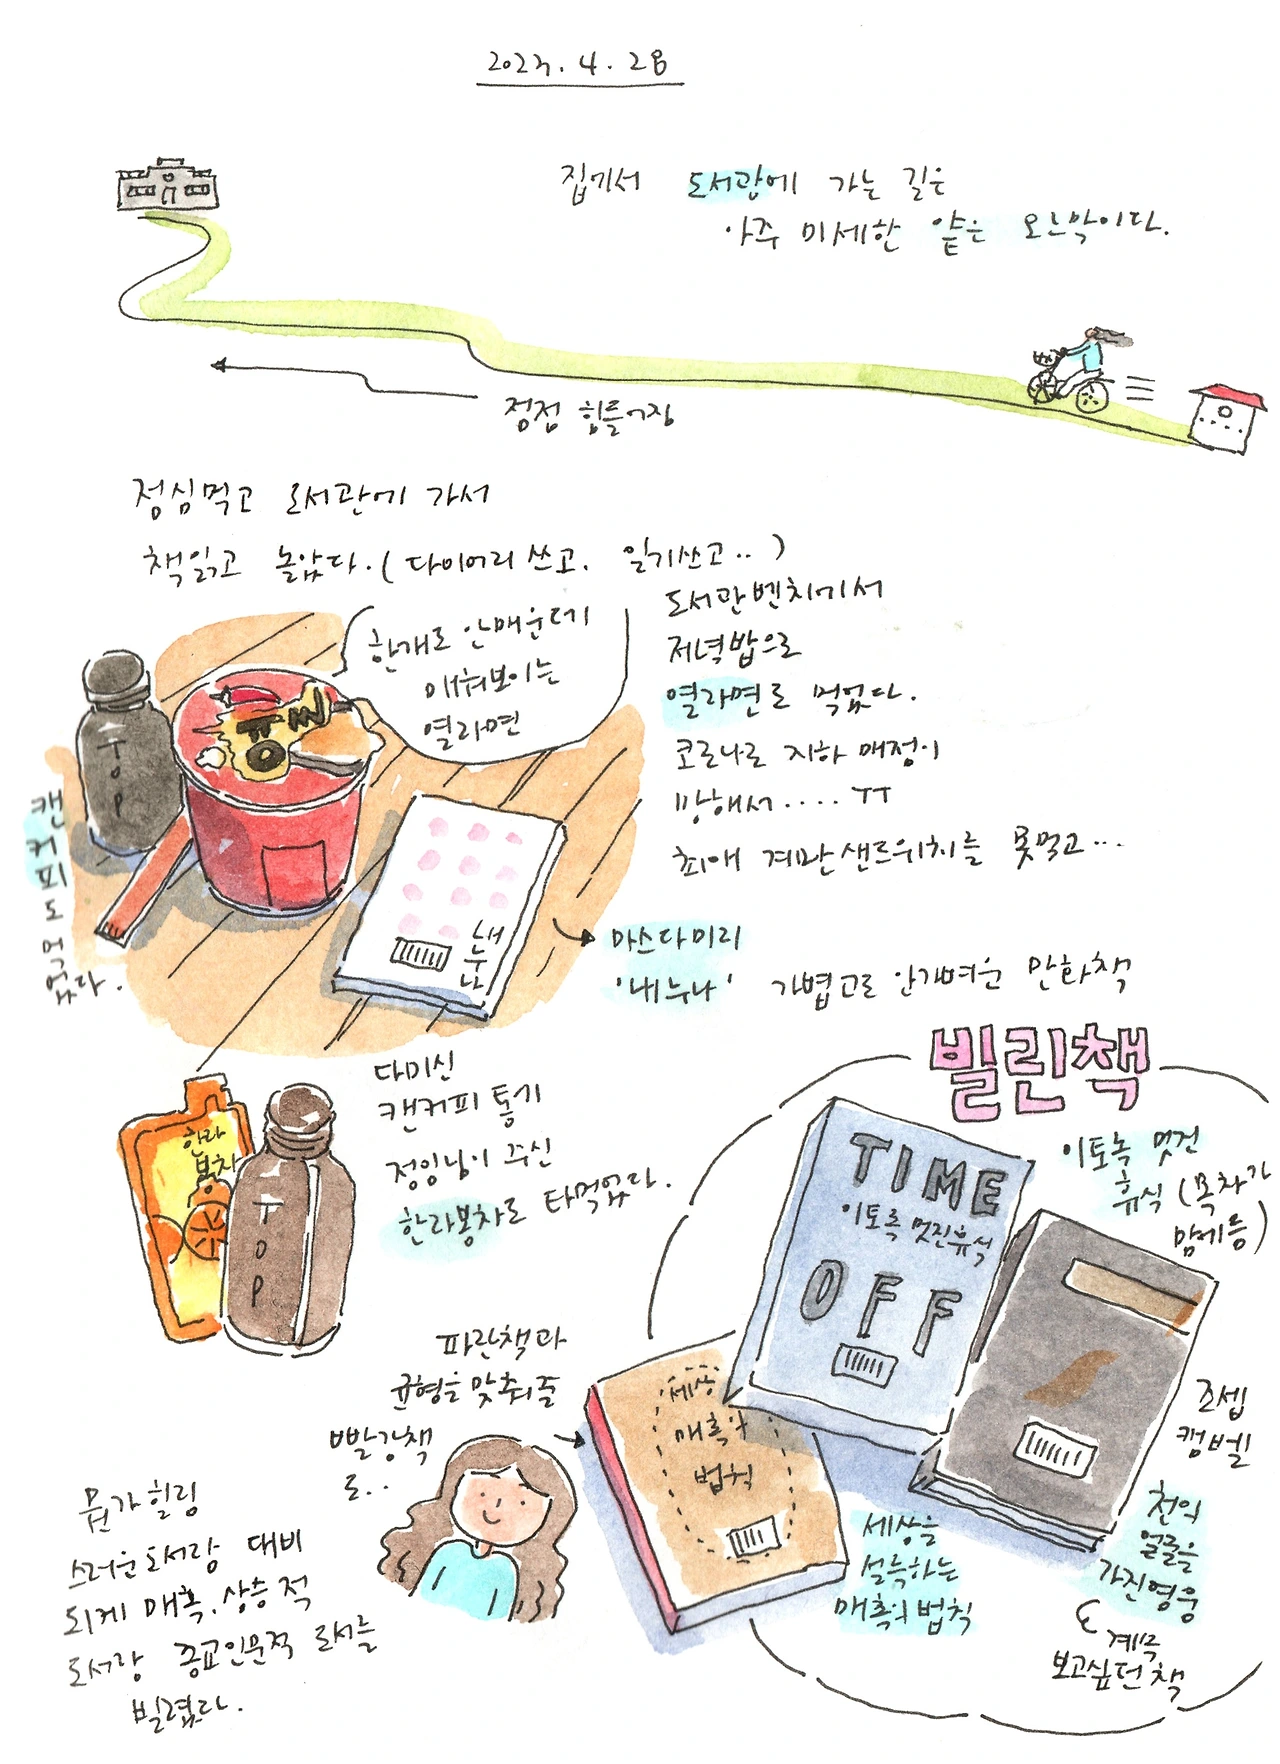 2023. 4. 28
집에서 도서관에 가는 길은
아주 미세한 얕은 오르막이다.
점점 힘들어짐
점심먹고 도서관에 가서
책읽고 놀았다. (다이어리 쓰고, 일기쓰고..)
도서관벤치에서
저녁밥으로
열라면로 먹었다.
코로나로 지하 매점이
망해서.... ㅠㅠ
최애 계란샌드위치를 못먹고...
한개도 안매운데
매워보이는
열라면
TOP
캔커피도 먹었다.
내누나
마스다미리
'내누나' 가볍고도 안가벼운 만화책
다마신
캔커피 통에
정임님이 주신
한라봉차도 타먹었다.
한라
봉차
TOP
빌린책
이토록 멋진
휴식 (목차가
맘에듬)
TIME
이토록 멋진휴식
OFF
조셉
캠벨
천의
얼굴을
가진영웅
계속
보고싶던 책
파란책과
균형을 맞춰줄
빨강책
도..
세상
매혹의
법칙
세상을
설득하는
매혹의 법칙
뭔가 힐링
스러운 도서랑 대비
되게 매혹, 상승적
도서랑 종교인문적 도서를
빌렸다.